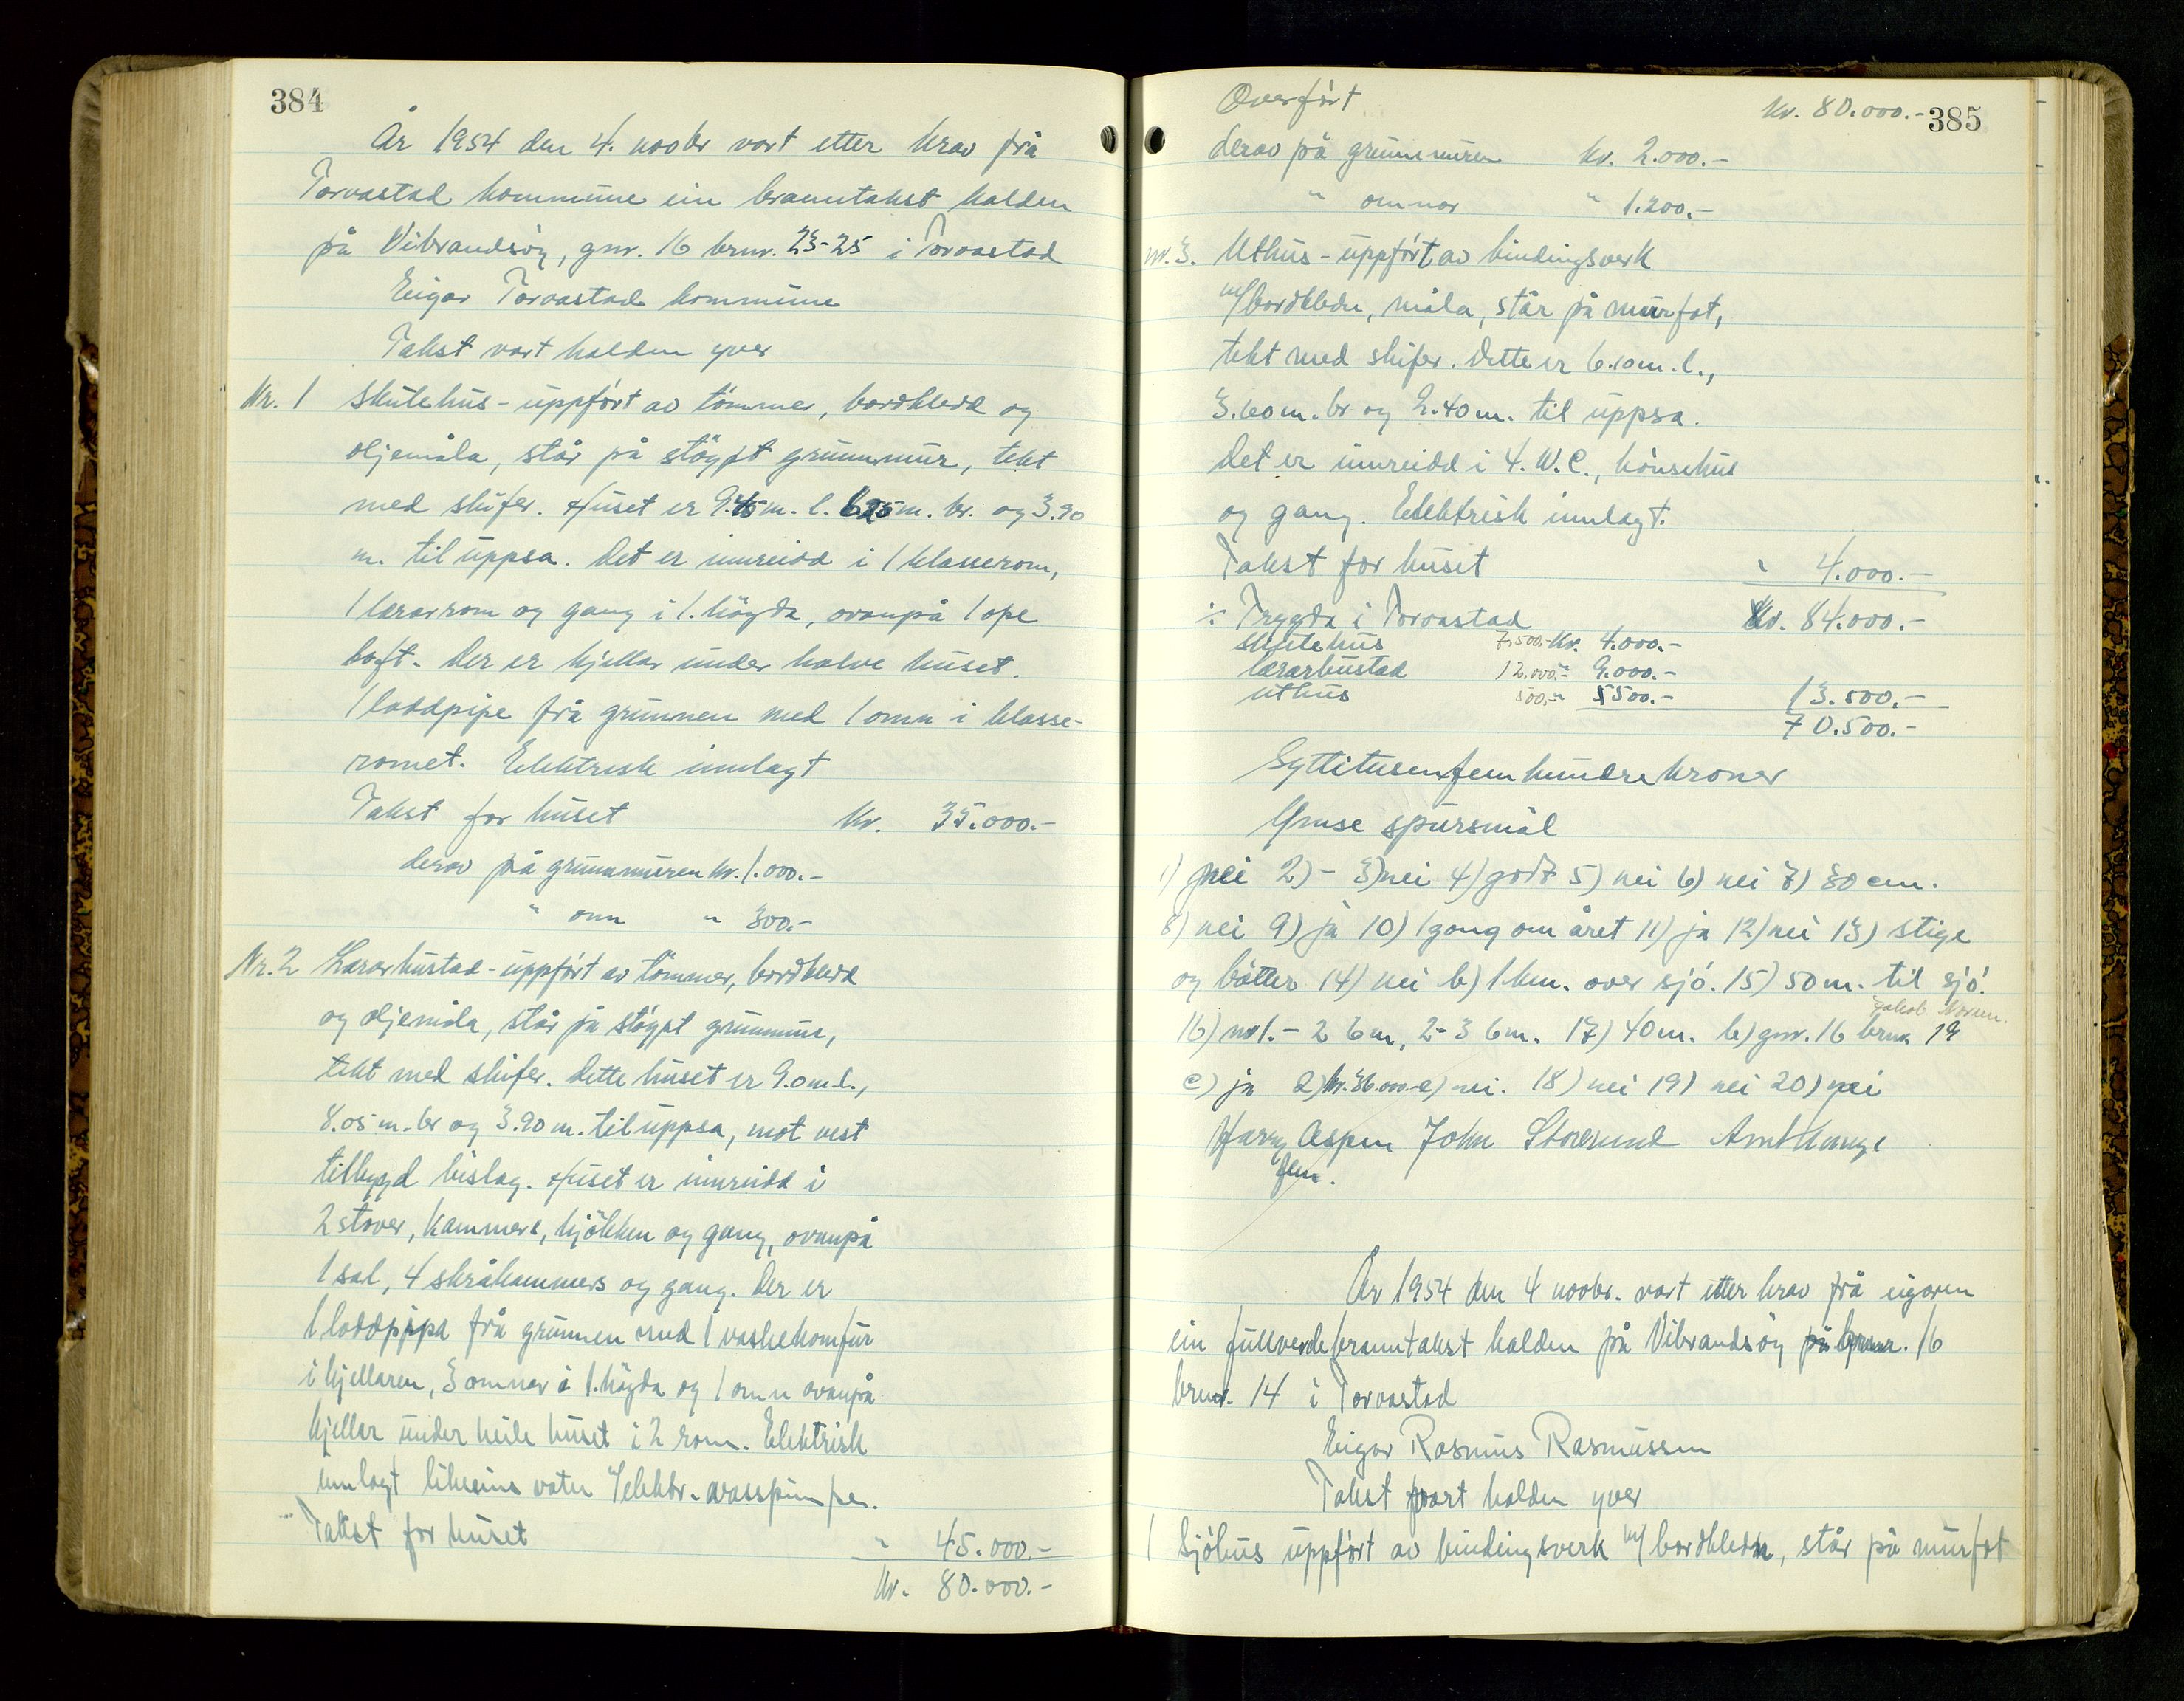 384
År 1954 den 4. novbr vart etter krav frå
Torvastad kommune ein branntakst halden
på Vibrandsöy, gnr. 16 brnr. 23-25 i Torvastad
Eigar Torvastad kommune
Takst vart halden yver
Nr. 1 Skulehus - uppfört av tömmer, bordkledd og
oljemåla, står på stöypt grunnmur, tekt
med skifer. Huset er 9.45 m. l. 6.25 m. br. og 3.90
m. til uppsa. Det er innreidd i 1 klasserom,
1 lærarrom og gang i 1. högda, ovanpå 1 ope
loft. Der er kjellar under halve huset.
1 loddpipe frå grunnen med 1 omn i klasse-
romet. Elektrisk innlagt
Takst for huset kr. 35.000.-
derav på grunnmuren kr. 1.000.-
" omn " 300.-
Nr. 2 Lærarbustad - uppfört av tömmer, bordkledd
og oljemåla, står på stöypt grunnmur,
tekt med skifer. Dette huset er 9.0 m. l.,
8.05 m. br og 3.90 m. til uppsa, mot vest
tilbygd bislag. Huset er innreidd i
2 stover, kammers, kjökken og gang, ovanpå
1 sal, 4 skråkammers og gang. Der er
1 loddpipa frå grunnen med 1 vaskekomfur
i kjellaren, 3 omnar i 1. högda og 1 omn ovanpå
kjellar under heile huset i 2 rom. Elektrisk
innlagt likeeins vatn m/elektr. vasspumpe.
Takst for huset " 45.000.-
Kr. 80.000.-
Overfört Kr. 80.000.- 385
derav på grunnmuren kr. 2.000.-
" omnar " 1.200.-
nr. 3. Uthus - uppfört av bindingsverk
m/bordkledn, måla, står på murfot,
tekt med skifer. Dette er 6.10 m. l.,
3.60 m. br og 2.40 m. til uppsa.
Det er innreidd i 4. W.C., hönsehus
og gang. Elektrisk innlagt.
Takst for huset " 4.000.-
÷ Trygda i Torvastad Kr. 84.000.-
skulehus 7.500.- Kr. 4.000.-
lærarbustad 12.000.- " 9.000.-
uthus 500.- " 500.- 13.500.-
70.500.-
Syttitusenfemhundre kroner
Ymse spursmål
1) nei 2) - 3) nei 4) godt 5) nei 6) nei 7) 30 cm.
8) nei 9) ja 10) 1 gong om året 11) ja 12) nei 13) stige
og bötter 14) nei b) 1 km. over sjö. 15) 50 m. til sjö.
Jakob
16) nr 1. - 2 6 m, 2 - 3 6 m. 17) 40 m. b) gnr. 16 brnr. 19
c) ja d) kr. 36.000.- e) nei. 18) nei 19) nei 20) nei
Harry Aspen John Storesund
År 1954 den 4 novbr. vart etter krav frå eigaren
ein fullverdebranntakst halden på Vibrandsöy gnr. 16
brnr. 14 i Torvastad
Eigar Rasmus Rasmussen
Takst vart halden yver
1 Sjöhus uppfört av bindingsverk m/bordkledn, står på murfot